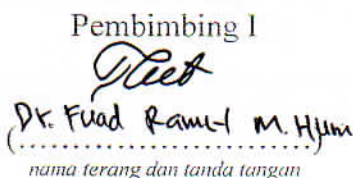 Pembimbing I
Dr. Fuad Rahmat M. Hum
(..............................)
nama terang dan tanda tangan